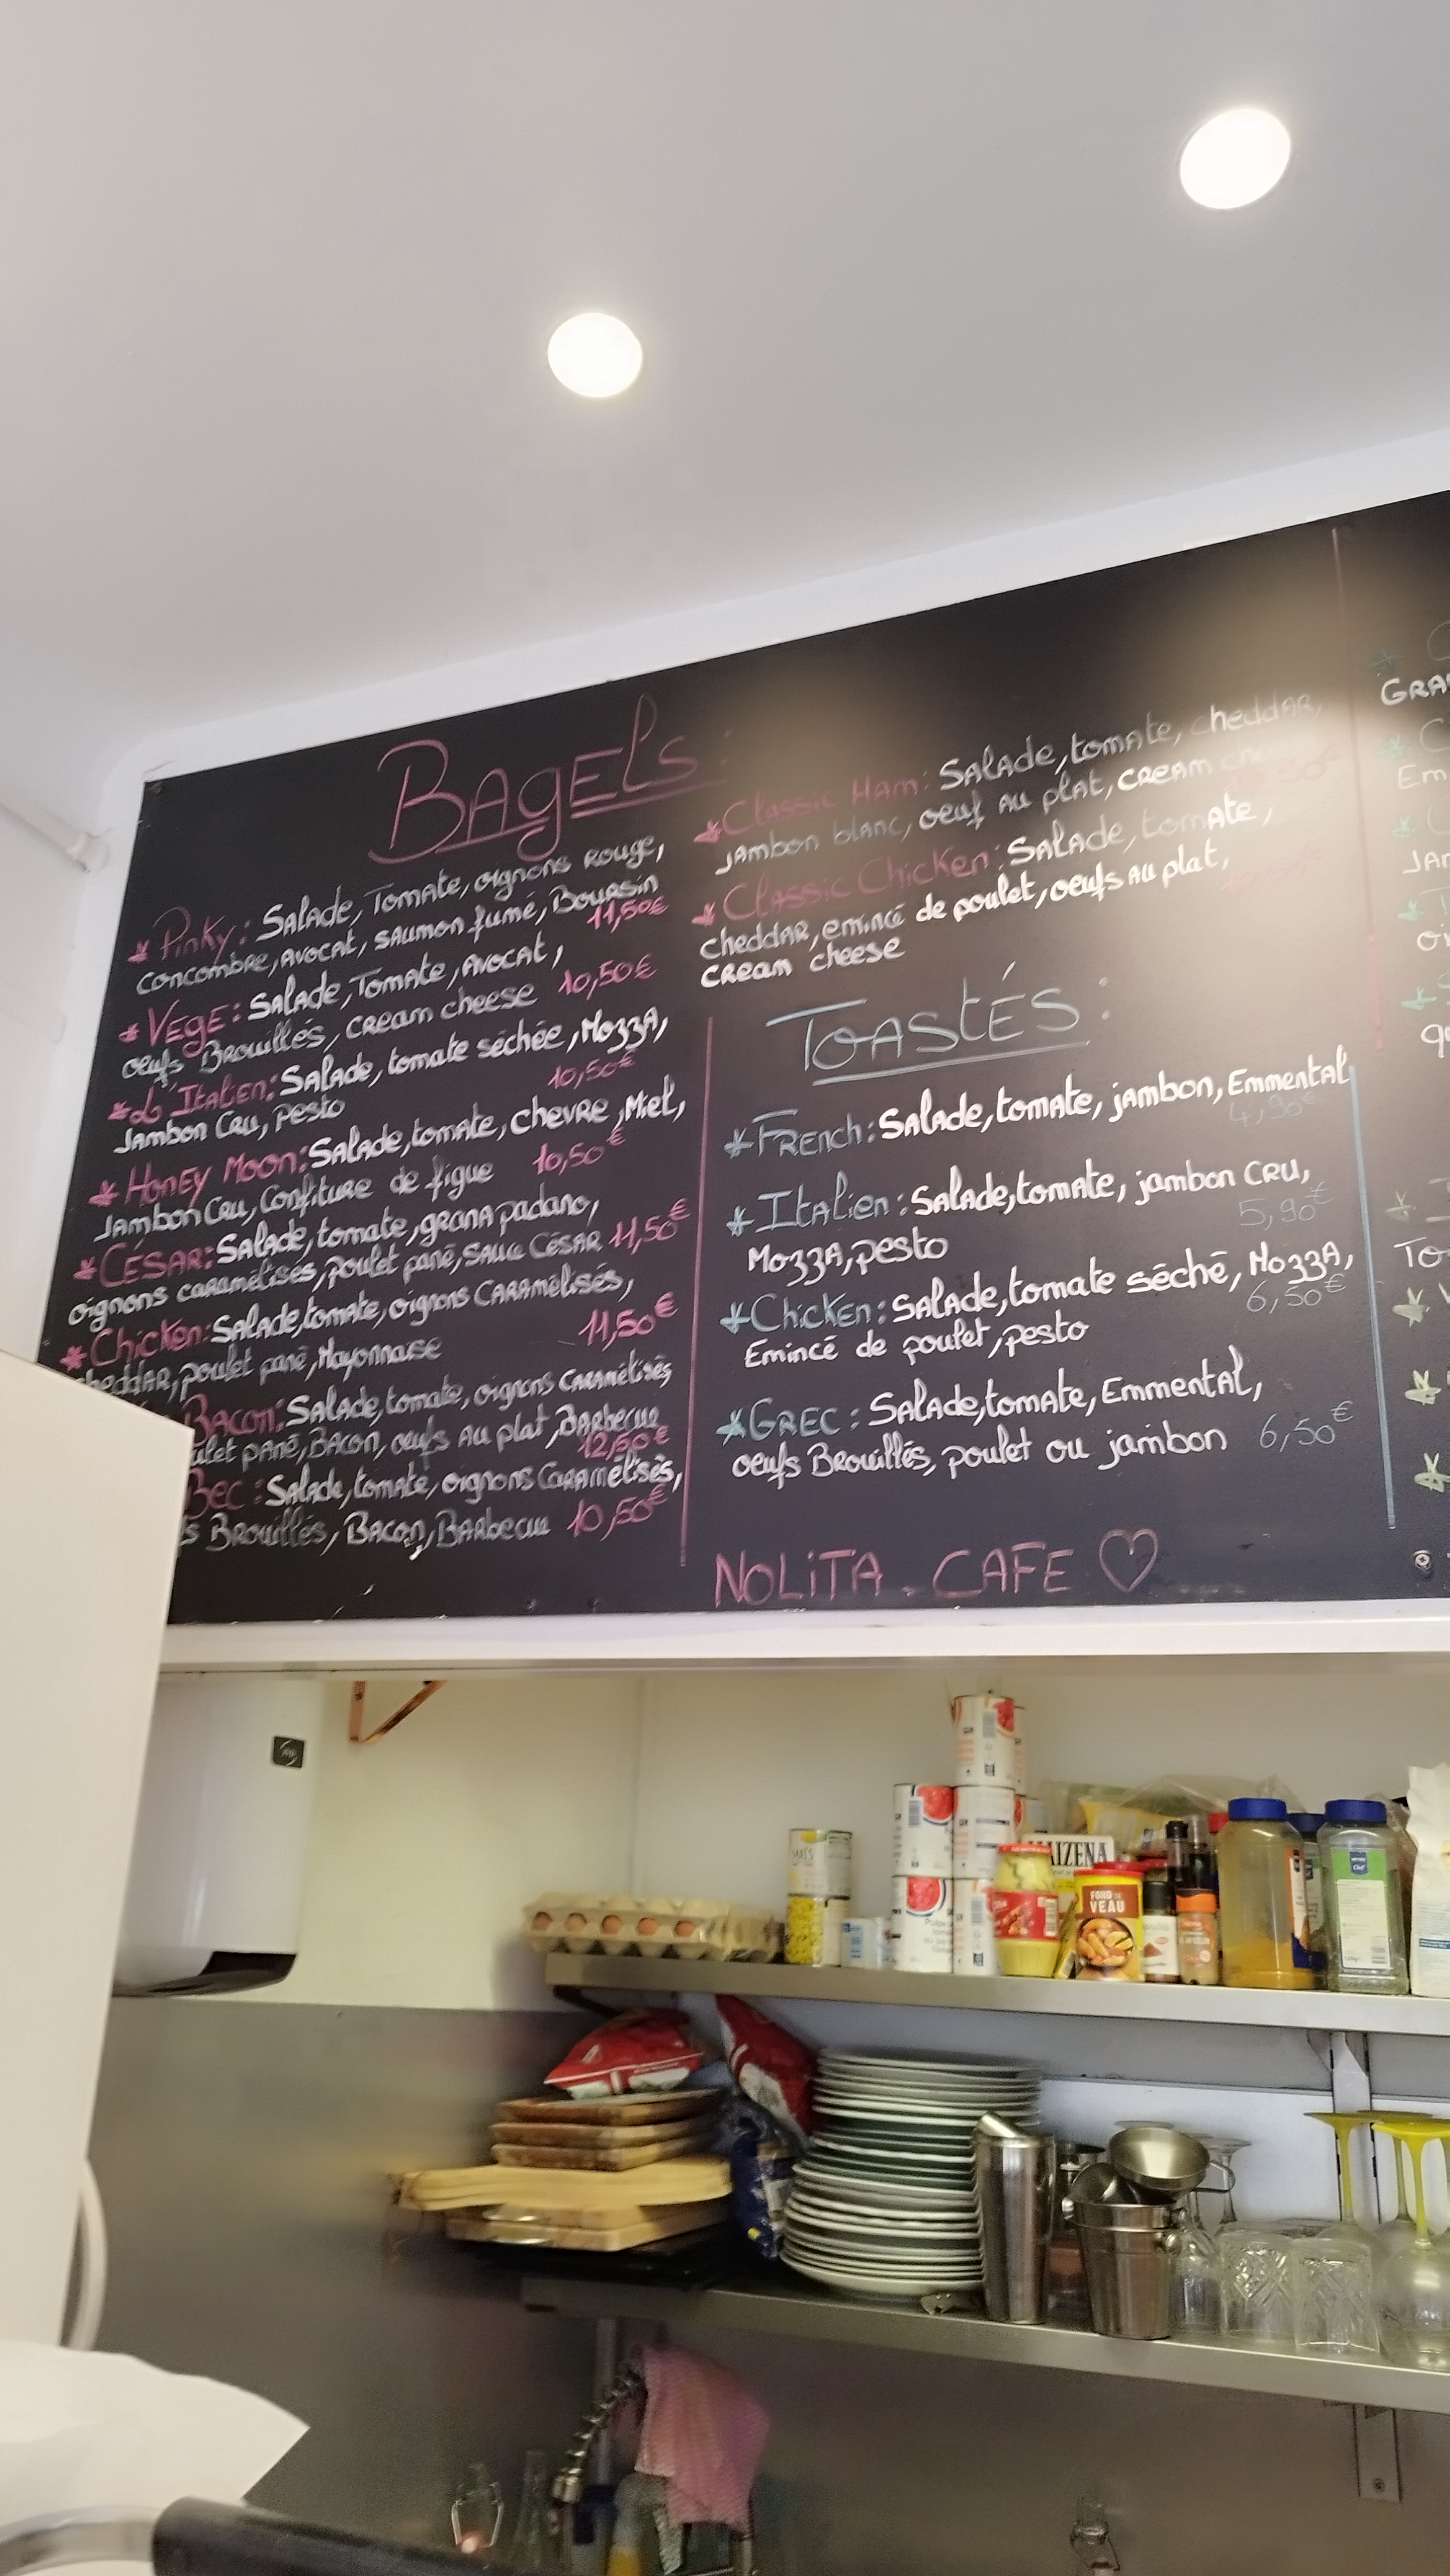 BAGELS :
* Pinky : Salade, Tomate, oignons rouge,
concombre, Avocat, saumon fumé, Boursin
11,50€
* Végé : Salade, Tomate, Avocat,
oeufs Brouillés, cream cheese 10,50€
* L'Italien : Salade, tomate séchée, Mozza,
Jambon Cru, pesto 10,50€
* Honey Moon : Salade, tomate, chevre, Miel,
Jambon Cru, Confiture de figue 10,50€
* César : Salade, tomate, grana padano,
oignons caramélisés, poulet pané, sauce César 11,50€
* Chicken : Salade, tomate, oignons caramélisés,
cheddar, poulet pané, Mayonnaise 11,50€
Bacon : Salade, tomate, oignons caramélisés
pané, Bacon, oeufs au plat, Barbecue
12,50€
Bec : Salade, tomate, oignons Caramélisés,
Brouillés, Bacon, Barbecue 10,50€
* Classic Ham : Salade, tomate, cheddar,
jambon blanc, oeuf au plat, cream
* Classic Chicken : Salade, tomate,
cheddar, emincé de poulet, oeufs au plat,
cream cheese
TOASTÉS :
* French : Salade, tomate, jambon, Emmental,
4,90€
* Italien : Salade, tomate, jambon cru,
Mozza, pesto 5,90€
* Chicken : Salade, tomate séché, Mozza,
Emincé de poulet, pesto 6,50€
* GREC : Salade, tomate, Emmental,
oeufs Brouillés, poulet ou jambon 6,50€
NOLITA . CAFE ♡
FOND DE
VEAU